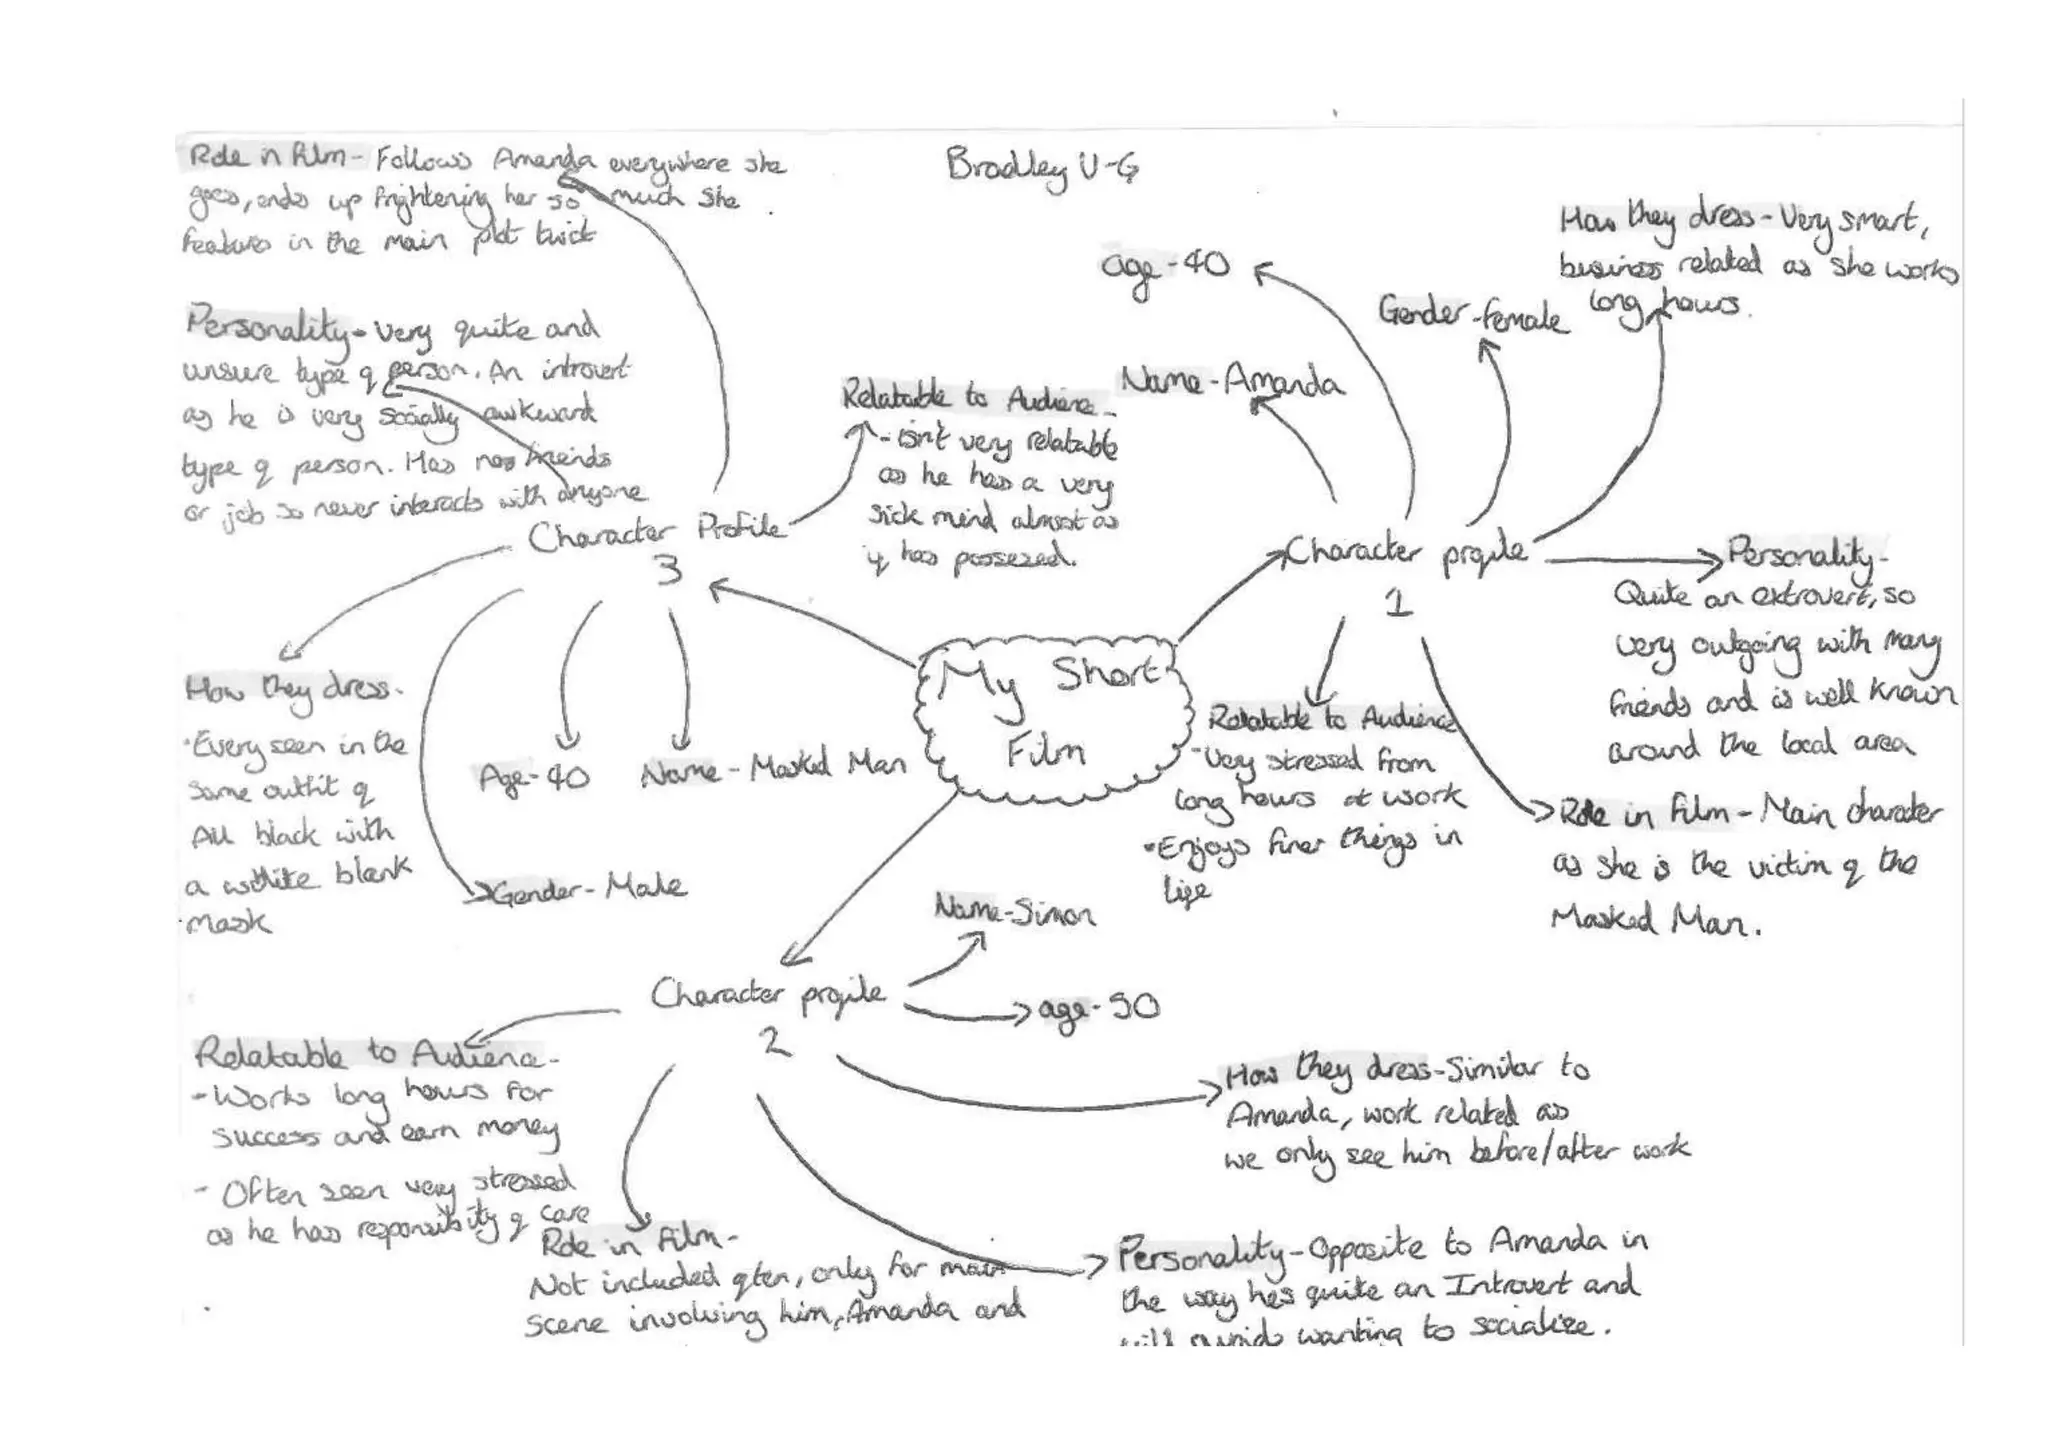 Bradley U-G
My Short
Film
Character profile
1
age-40
Name-Amanda
Gender-female
How they dress-Very smart,
business related as she works
long hours.
Personality-
Quite an extrovert, so
very outgoing with many
friends and is well known
around the local area
Role in film-Main character
as she is the victim of the
Masked Man.
Relatable to Audience
-Very stressed from
long hours at work
-Enjoys finer things in
life
Character profile
2
Name-Simon
age-50
How they dress-Similar to
Amanda, work related as
we only see him before/after work
Personality-Opposite to Amanda in
the way hes quite an Introvert and
wanting to socialize.
Role in film-
Not included often, only for main
scene involving him, Amanda and
Relatable to Audience-
-Works long hours for
success and earn money
- Often seen very stressed
as he has responsibility of care
Character Profile
3
Role in film-Follows Amanda everywhere she
goes, ends up frightening her so much she
features in the main plot twist
Personality-Very quite and
unsure type of person. An introvert
as he is very socially awkward
type of person. Has friends
or job so never interacts with anyone
Relatable to Audience-
-isn't very relatable
as he has a very
sick mind almost as
if has possezed.
How they dress-
-Every seen in the
same outfit of
All black with
a white blank
mask
Age-40
Name-Masked Man
Gender-Male